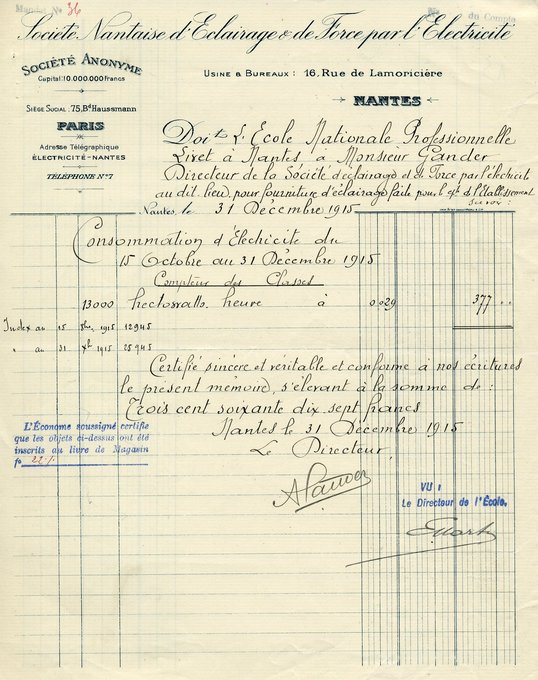 Mandat No 36
No du Compte
Société Nantaise d'Eclairage & de Force par l'Electricité
SOCIÉTÉ ANONYME
Capital: 10.000.000 Francs
USINE & BUREAUX : 16, Rue de Lamoricière
SIÈGE SOCIAL : 75, Bd Haussmann
NANTES
PARIS
Adresse Télégraphique
ÉLECTRICITÉ-NANTES
TÉLÉPHONE No 7
Doit L'Ecole Nationale Professionnelle
Livet à Nantes à Monsieur Gander
Directeur de la Société d'éclairage et de Force par l'électricité
au dit lieu, pour fourniture d'éclairage faite pour l' de l'Etablissement
Savoir :
Nantes, le 31 Décembre 1915
Consommation d'Electricité du
15 Octobre au 31 Décembre 1915
Compteur des Classes
13000 hectowatts heure à 0.029 377 ..
Index au 15 8bre 1915 12945
" au 31 Xbre 1915 25945
Certifié sincère et véritable et conforme à nos écritures
le présent mémoire, s'élevant à la somme de :
Trois cent soixante dix sept francs
Nantes le 31 Décembre 1915
Le Directeur
L'Économe soussigné certifie
que les objets ci-dessus ont été
inscrits au livre de Magasin
fo 227.
VU :
Le Directeur de l'École,